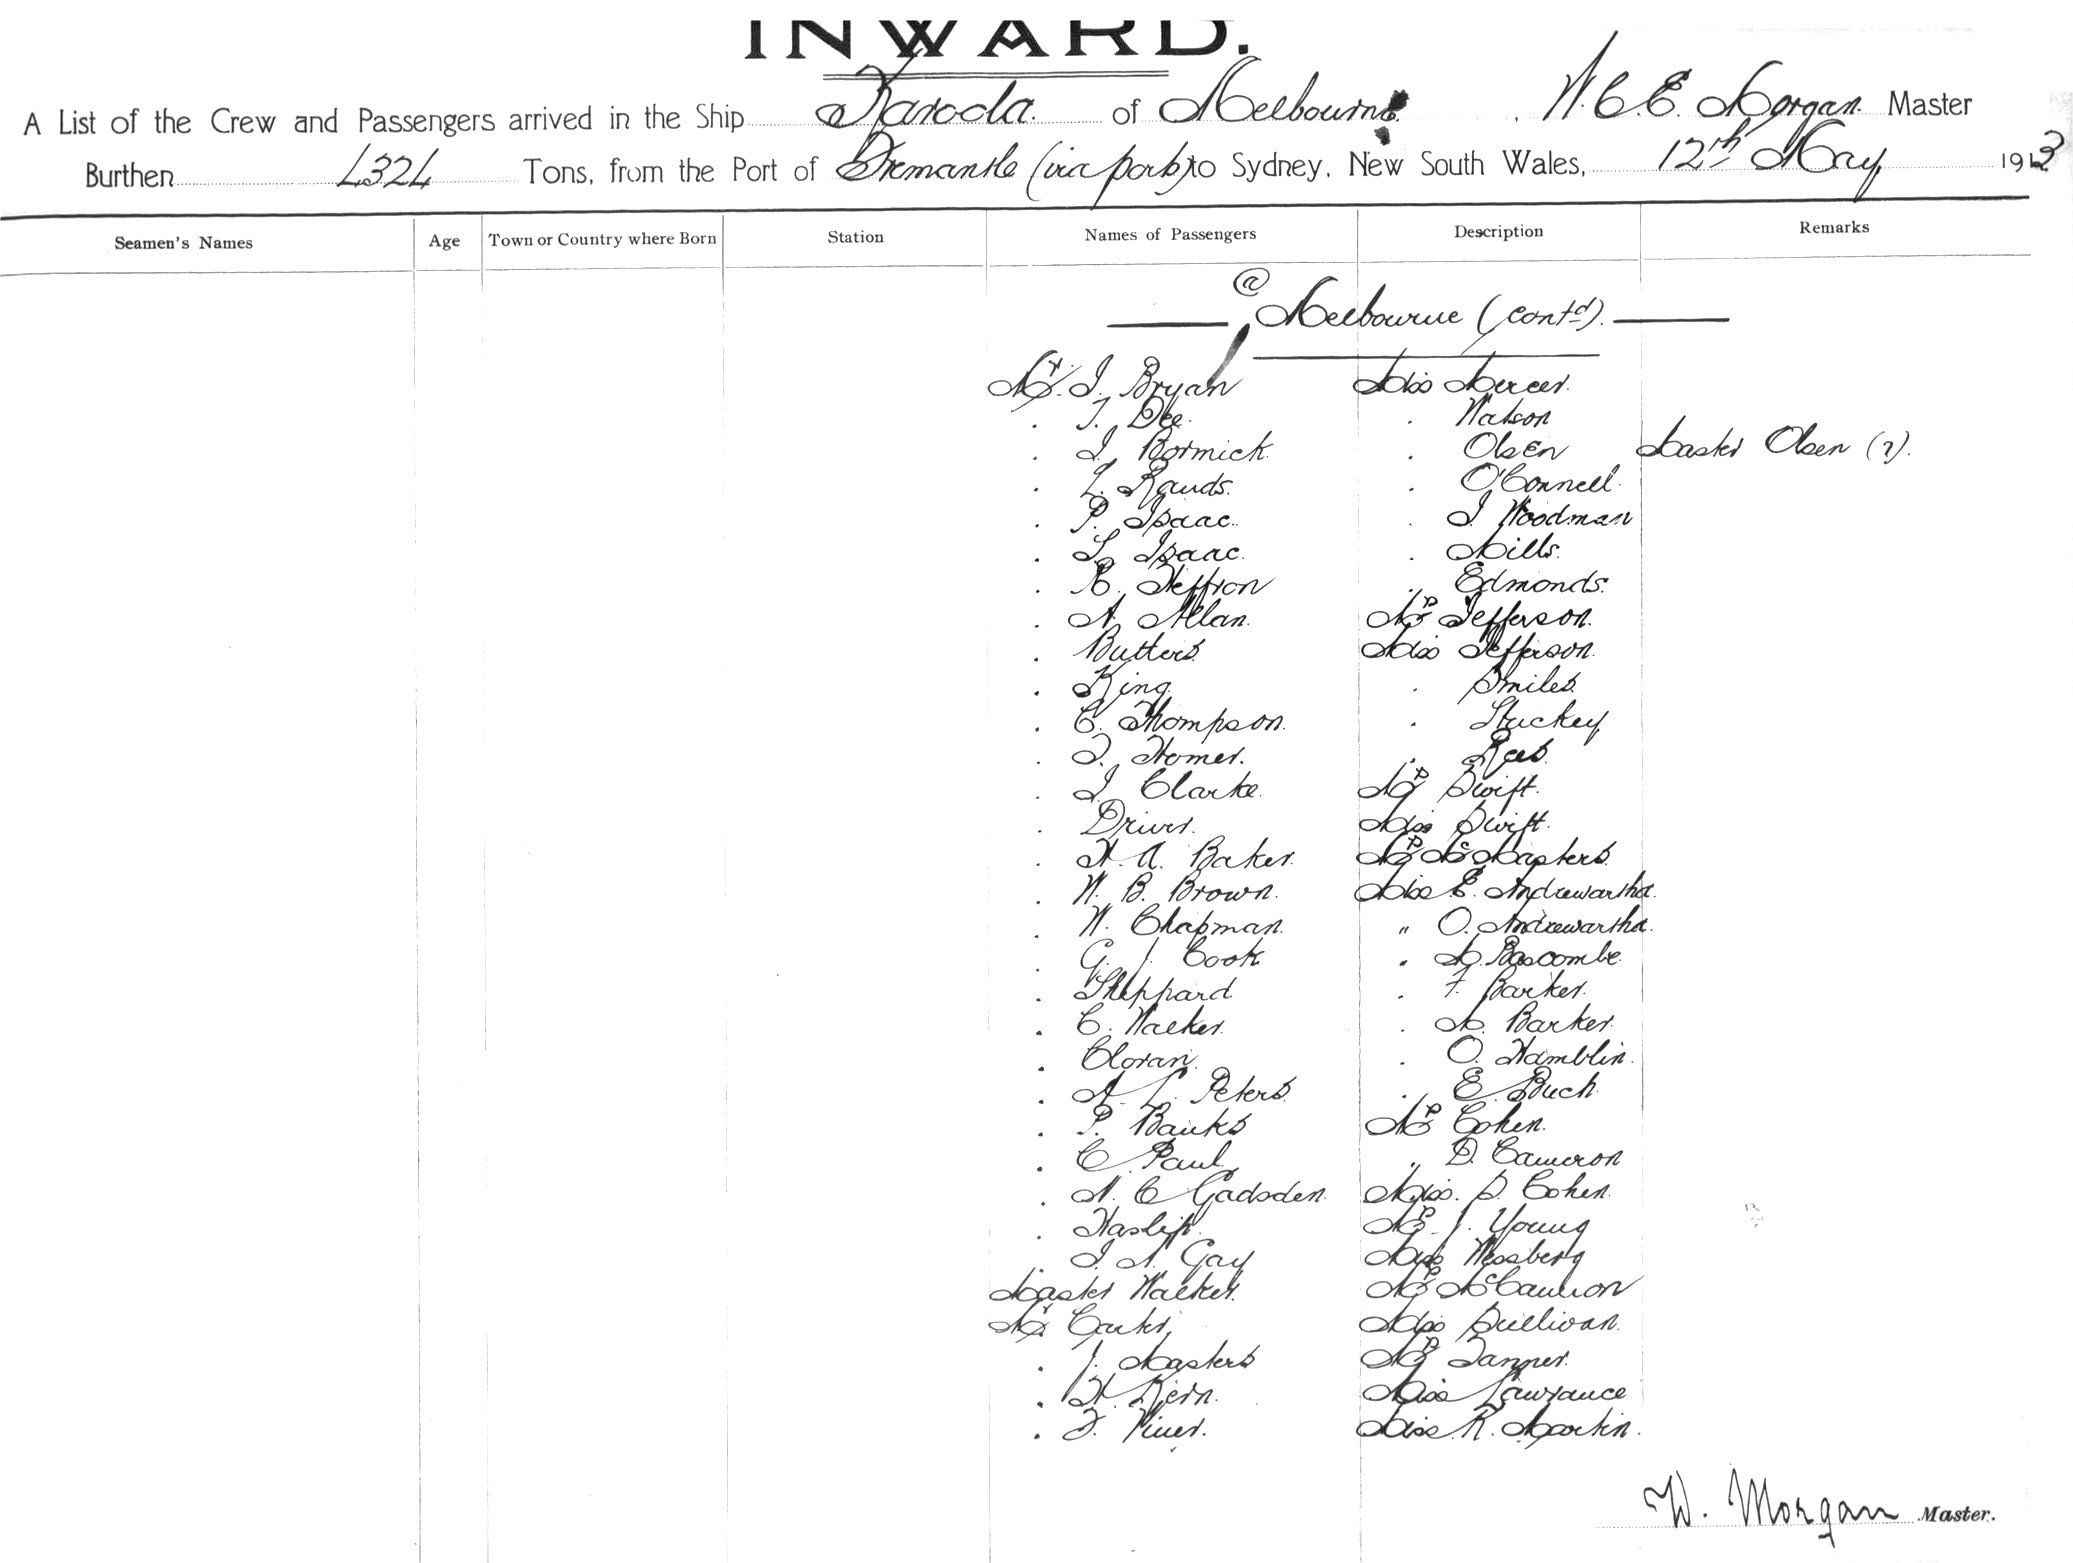 INWARD.
A List of the Crew and Passengers arrived in the Ship Karoola. of Melbourne. W. C. E. Morgan Master
Burthen 4324 Tons, from the Port of Fremantle (via ports) to Sydney, New South Wales, 12th May 1913
Seamen's Names Age Town or Country where Born Station Names of Passengers Description Remarks
@ Melbourne (contd).
Mr. J. Bryan Miss Mercer.
. T. Dee. . Watson
. J. Bormick. . Olsen Master Olsen (7).
. L. Rands. . O'Connell.
. P. Isaac. . J. Woodman
. S. Isaac. . Mills.
. R. Heffron . Edmonds.
. A. Allan. Mrs Jefferson.
. Butters. Miss Jefferson.
. King. . Smiles.
. C. Thompson. . Stuckey
. T. Homer. . Rees.
. J. Clarke. Mrs Swift.
. Driver. Miss Swift.
. H. A. Baker. Mrs McMasters.
. W. B. Brown. Miss E. Andrewartha.
. W. Chapman. " O. Andrewartha.
. G. J. Cook . M. Bascombe.
. Sheppard . F. Barker.
. C. Walker. . M. Barker.
. Cloran. . O. Hamblin.
. A. L. Peters. . E. Buch.
. P. Banks Mrs Cohen.
. C. Paul. " D. Cameron
. N. C. Gadsden. Miss. S. Cohen.
. Haslip. Mrs J. Young
. J. A. Gay Miss Wessberg
Master Walker. Mrs McCannon
Mr. Carter. Miss Sullivan.
. J. Masters Mrs Tanner.
. H. Kern. Miss Lawrance
. F. Viner. Miss R. Martin.
W. Morgan Master.